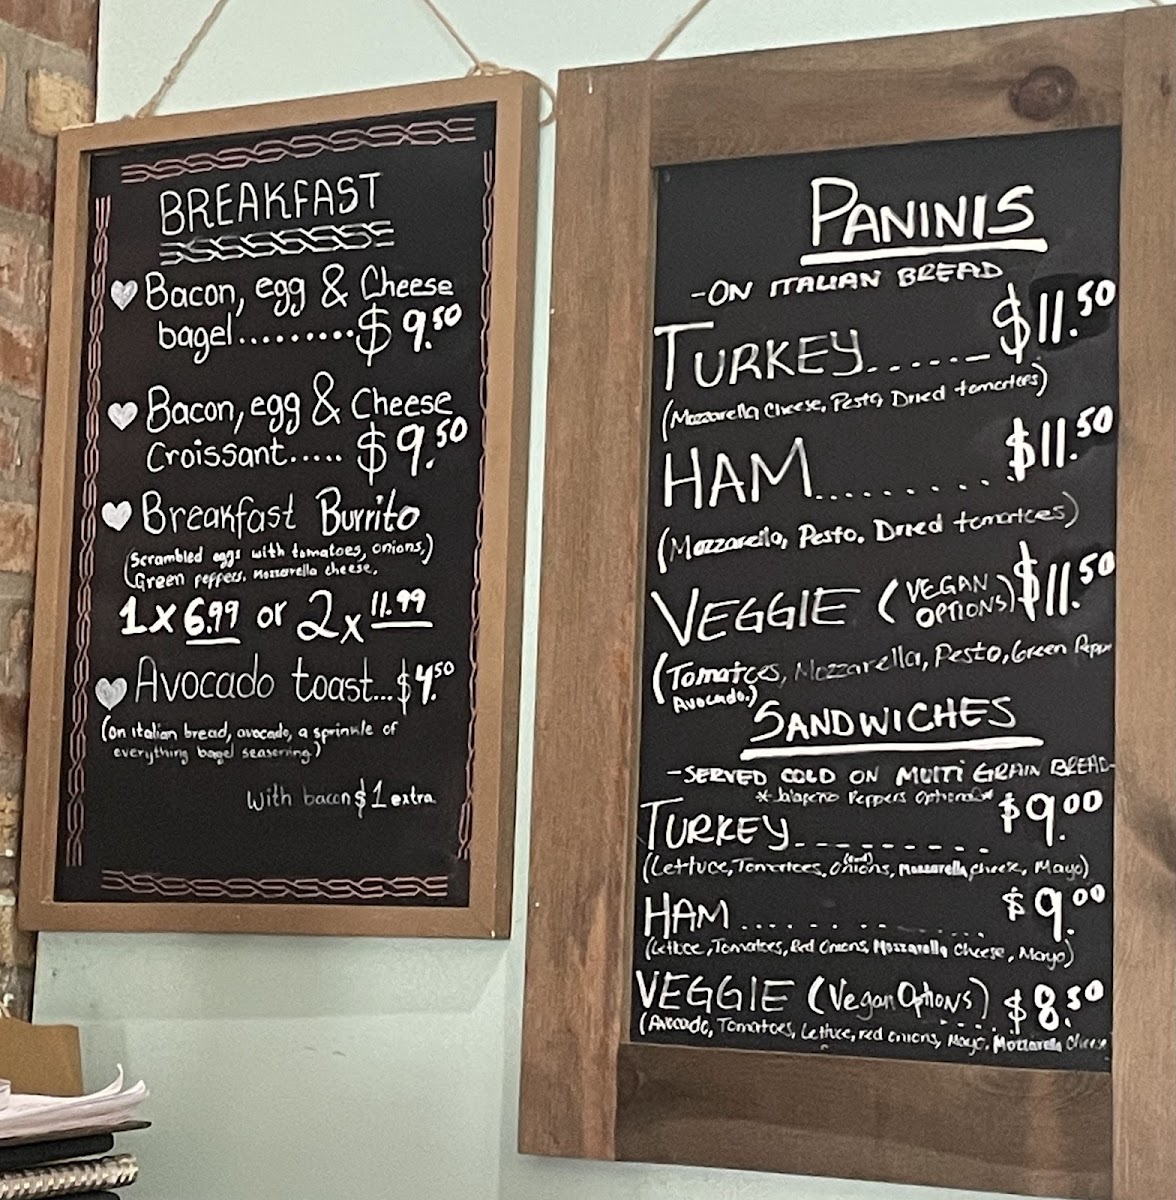 BREAKFAST
Bacon, egg & Cheese
bagel......... $9.50
Bacon, egg & Cheese
Croissant..... $9.50
Breakfast Burrito
(Scrambled eggs with tomatoes, onions,)
Green peppers, Mozzarella cheese,
1x 6.99 or 2x 11.99
Avocado toast...$4.50
(on italian bread, avocado, a sprinkle of
everything bagel seasoning.)
With bacon $1 extra
PANINIS
-ON ITALIAN BREAD
TURKEY....... $11.50
(Mozzarella Cheese, Pesto, Dried tomatoes)
HAM.......... $11.50
(Mozzarella, Pesto. Dried tomatoes)
VEGGIE (VEGAN OPTIONS) $11.50
(Tomatoes, Mozzarella, Pesto, Green Pepper
Avocado.)
SANDWICHES
-SERVED COLD ON MULTI GRAIN BREAD-
*Jalapeno Peppers Optional*
TURKEY......... $9.00
(Lettuce, Tomatoes, (red) Onions, Mozzarella cheese, Mayo)
HAM............ $9.00
(Lettuce, Tomatoes, Red Onions, Mozzarella Cheese, Mayo)
VEGGIE (Vegan Options).... $8.50
(Avocado, Tomatoes, Lettuce, red onions, Mayo, Mozzarella Cheese